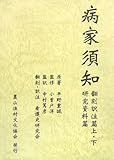 病家須知
翻刻訳注篇 上・下
研究資料篇
原著 平野重誠
監修 小曽戸洋
監訳 中村篤彦
翻刻・訳注 看護史研究会
農山漁村文化協会 発行